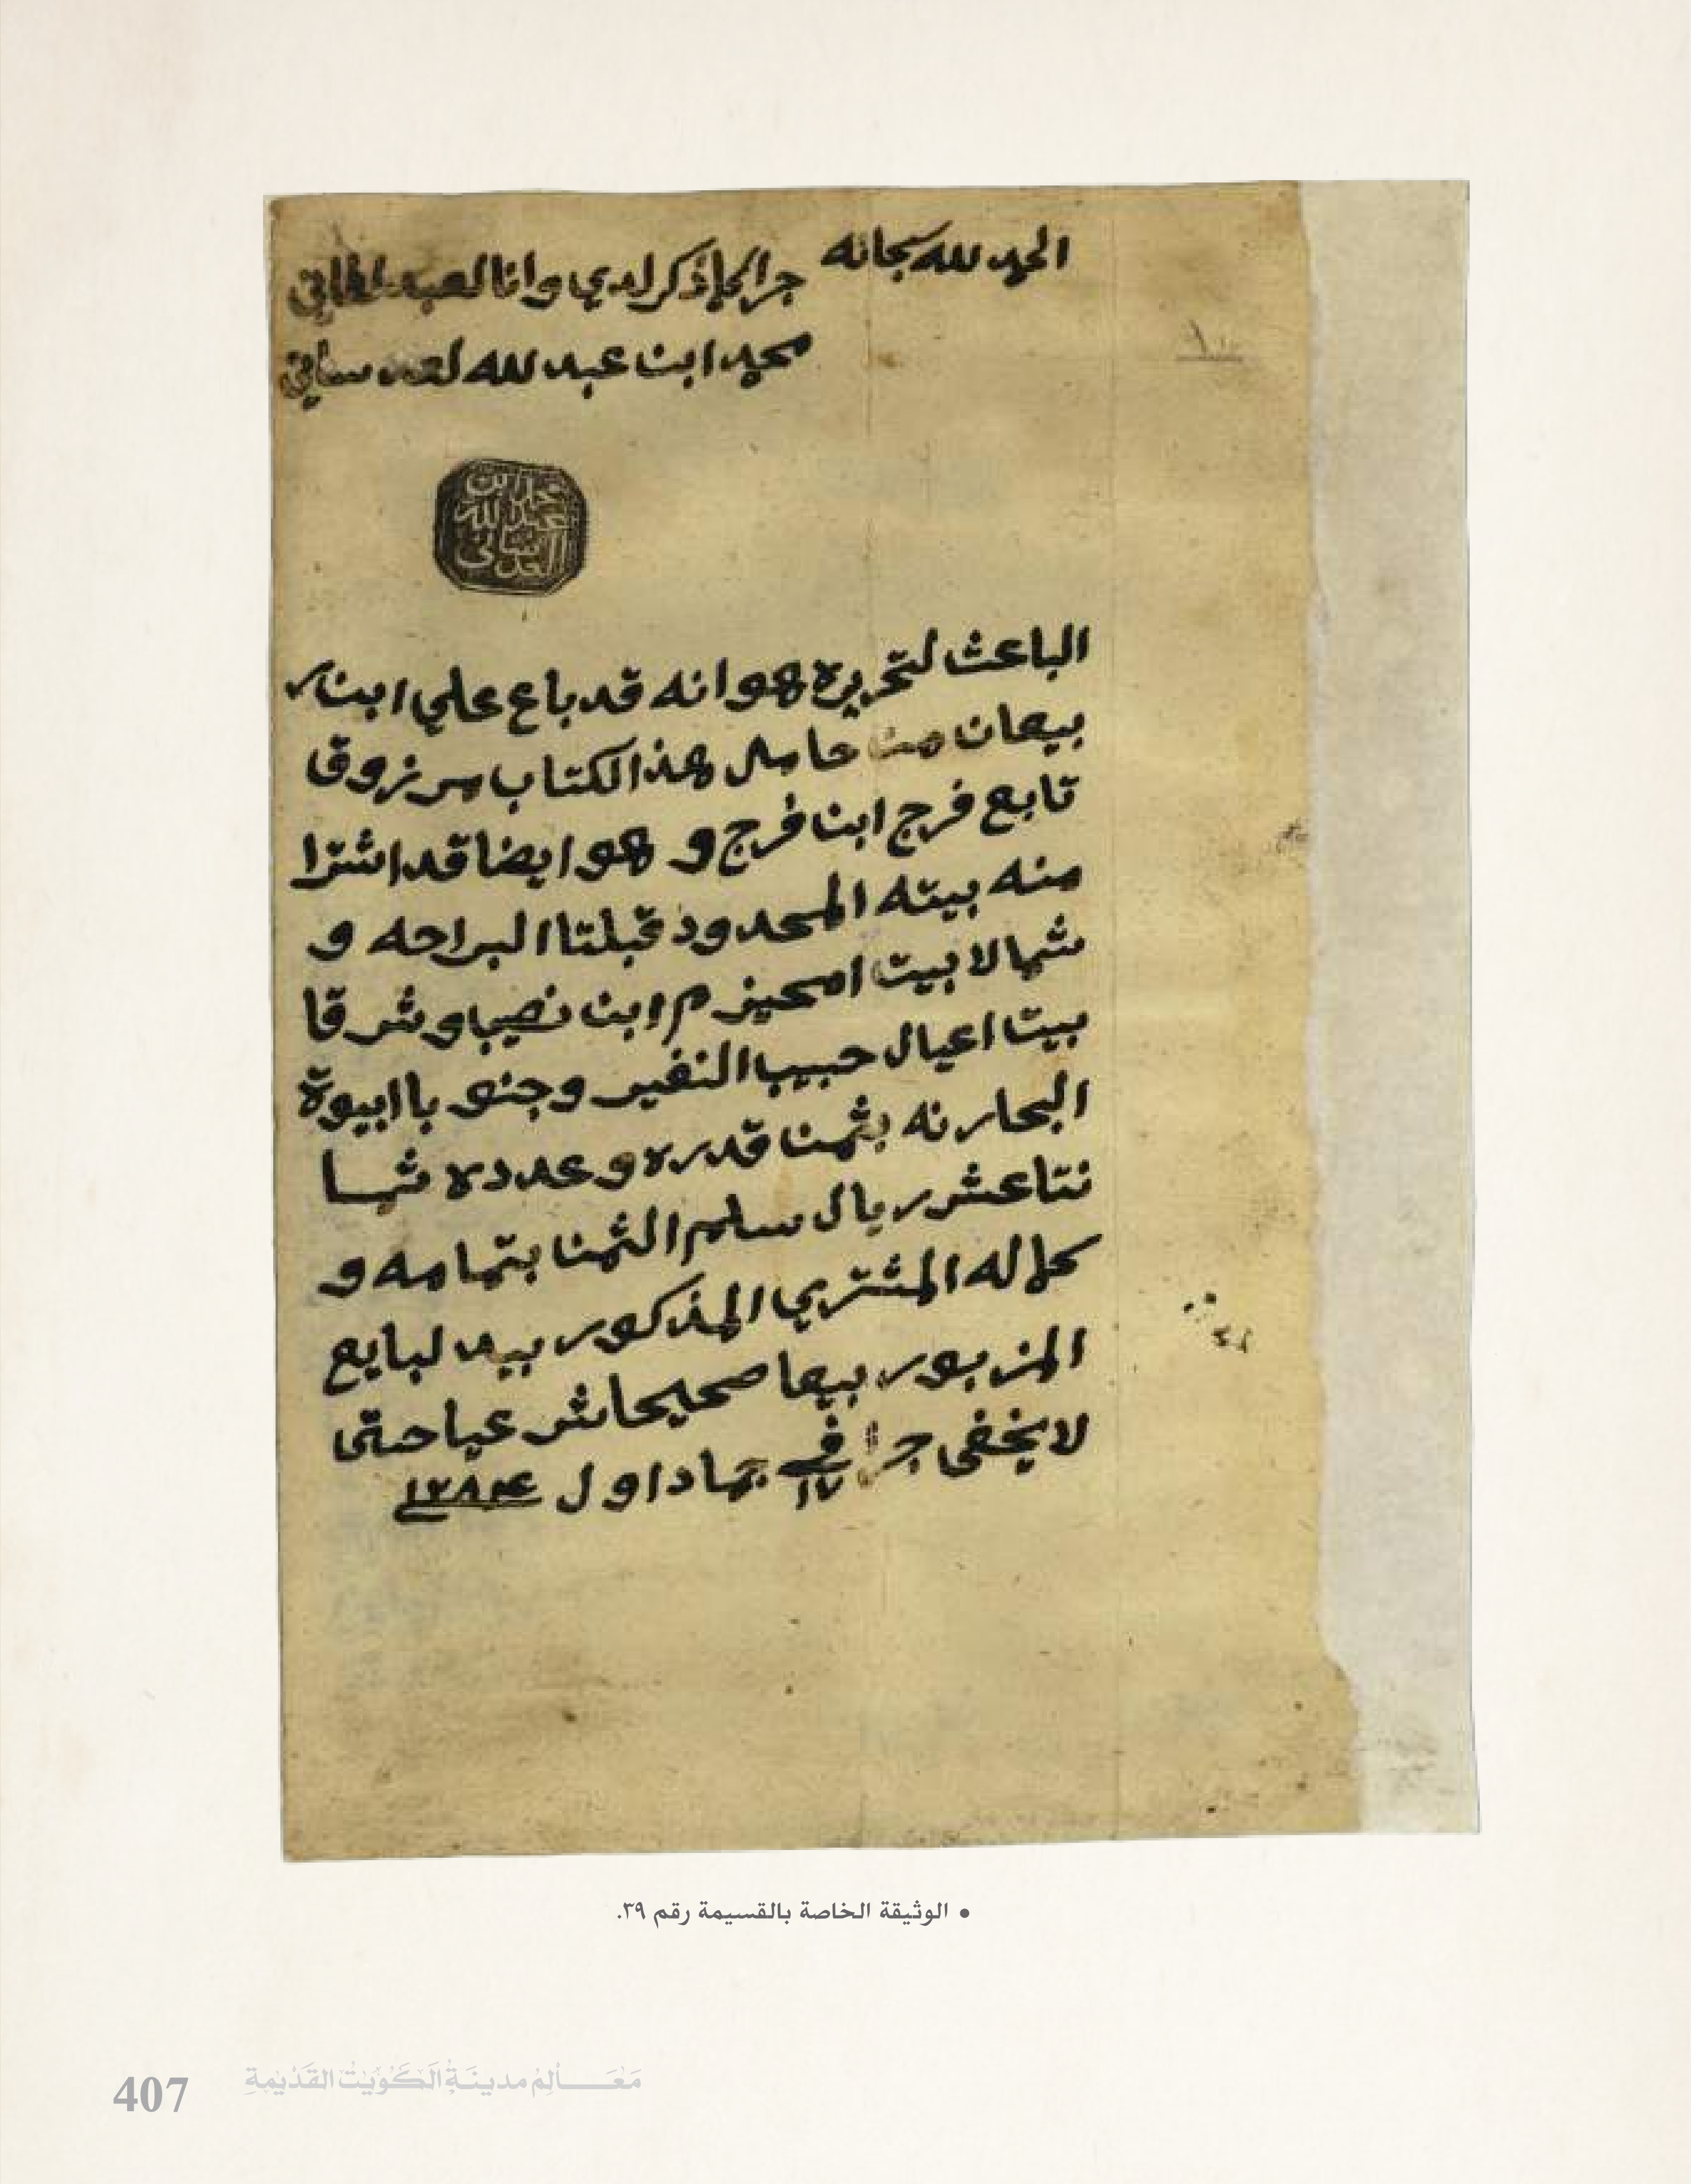 الحمد لله سبحانه
جرا كما ذكر لدي وانا العبد الفاني
محمد ابن عبد لله لعدساني
محمد ابن
عبد الله
العدساني
الباعث لتحريره هو انه قد باع علي ابن
بيعان من حامل هذ الكتاب مرزوق
تابع فرج ابن فرج و هو ايضا قد اشترا
منه بيته المحدود قبلتا البراحه و
شمالا بيت امحيزم ابن نصيب وشرقا
بيت اعيال حبيب النفير وجنوبا ابيوة
البحارنه بثمن قدره وعدده ثما
نتاعشر ريال سلم الثمن بتمامه و
كماله المشتري المذكور بيد لبايع
المزبور بيعا صحيحا شرعيا حتى
لا يخفى جرا في ١٧ جماد اول ١٢٨٤
• الوثيقة الخاصة بالقسيمة رقم ٣٩.
407 معالم مدينة الكويت القديمة